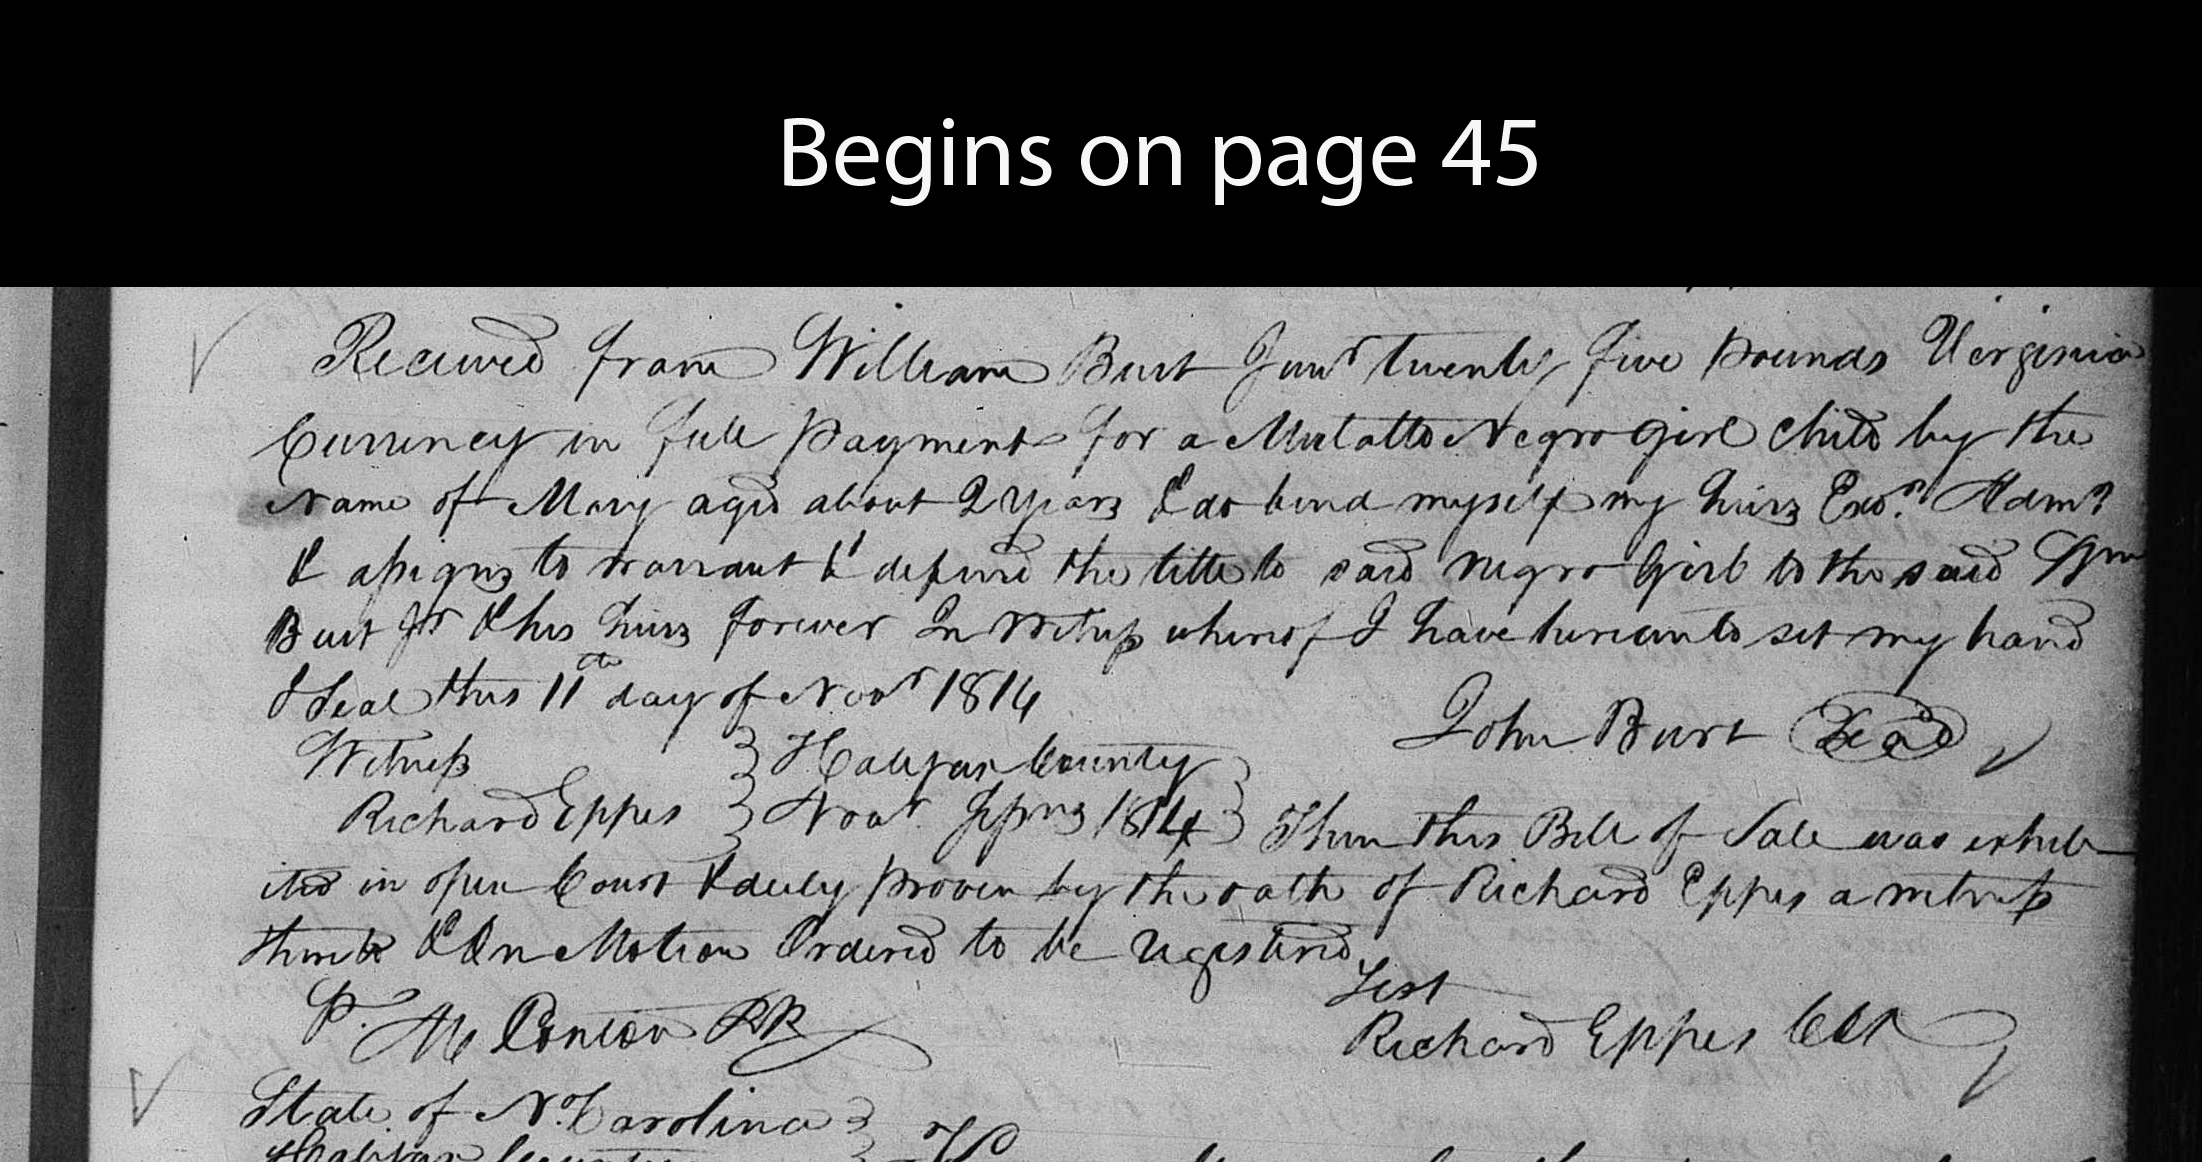 Begins on page 45
Received from William Burt Junr twenty five pounds Virginia
Currency in full Payment for a Mulatto Negro Girl Child by the
Name of Mary aged about 2 years & do bind myself my heirs Exors Admrs
& assigns to warrant & defend the title to said negro Girl to the said Wm
Burt Jr & his heirs forever In Witness whereof I have hereunto set my hand
& Seal this 11th day of Novr 1814
John Burt Seal
Witness } Halifax County }
Richard Eppes } Novr Sessns 1814 } Then this Bill of Sale was exhib
ited in open Court & duly proven by the oath of Richard Eppes a witness
thereto & On Motion Ordered to be registered
Test
P. Richard Eppes CCk
State of No. Carolina }
Halifax County }